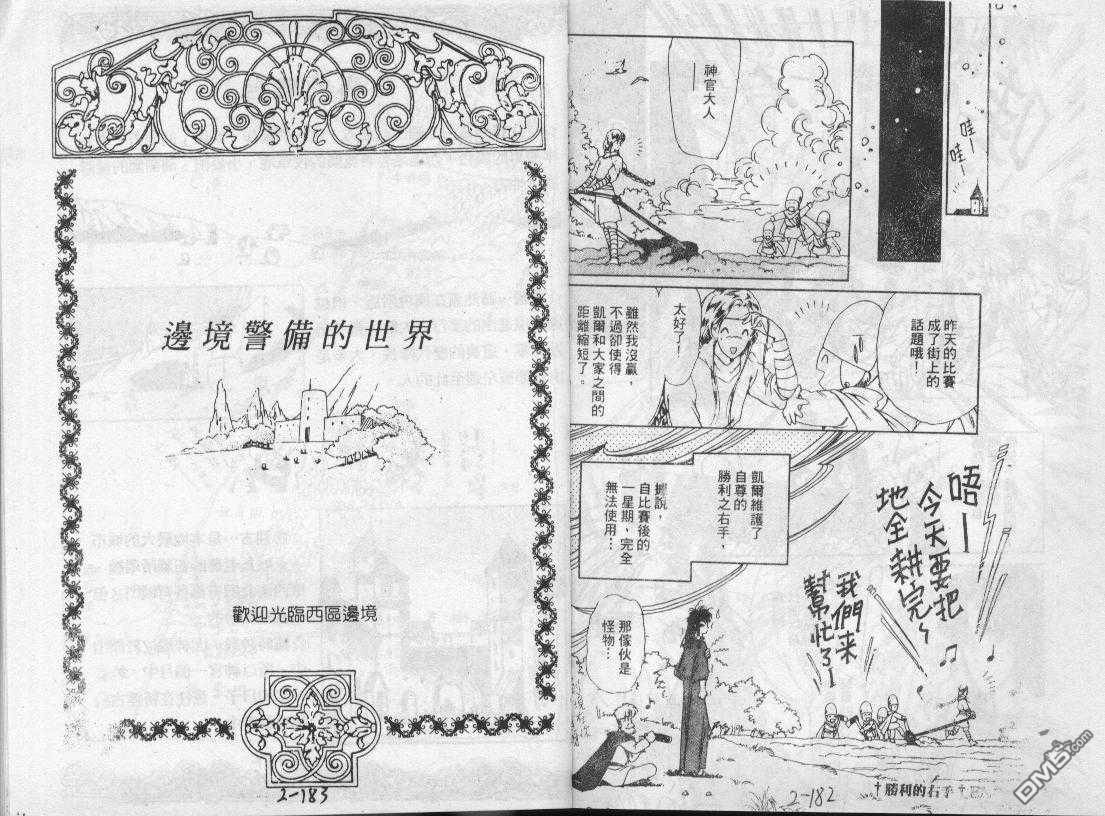 哇
哇—
神官大人
——
昨天的比賽
成了街上的
話題哦！
太好了！
雖然我沒贏，
不過卻使得
凱爾和大家之間的
距離縮短了。
唔—
今天要把
地全耕完～
我們来
幫忙了—
凱爾維護了
自尊的
勝利之右手，
據說，
自比賽後的
一星期，完全
無法使用…
那傢伙是
怪物…
†勝利的右手†
2-182
邊境警備的世界
歡迎光臨西區邊境
2-183
DM5.com